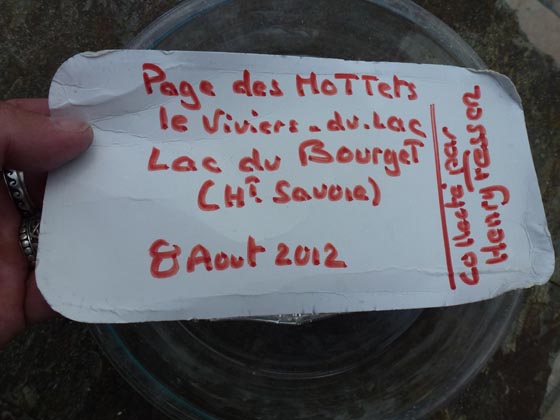 Page des MoTTets
le Viviers-du-Lac
Lac du Bourget
(Ht. Savoie)
8 Aout 2012
Collecté par
Henry resson